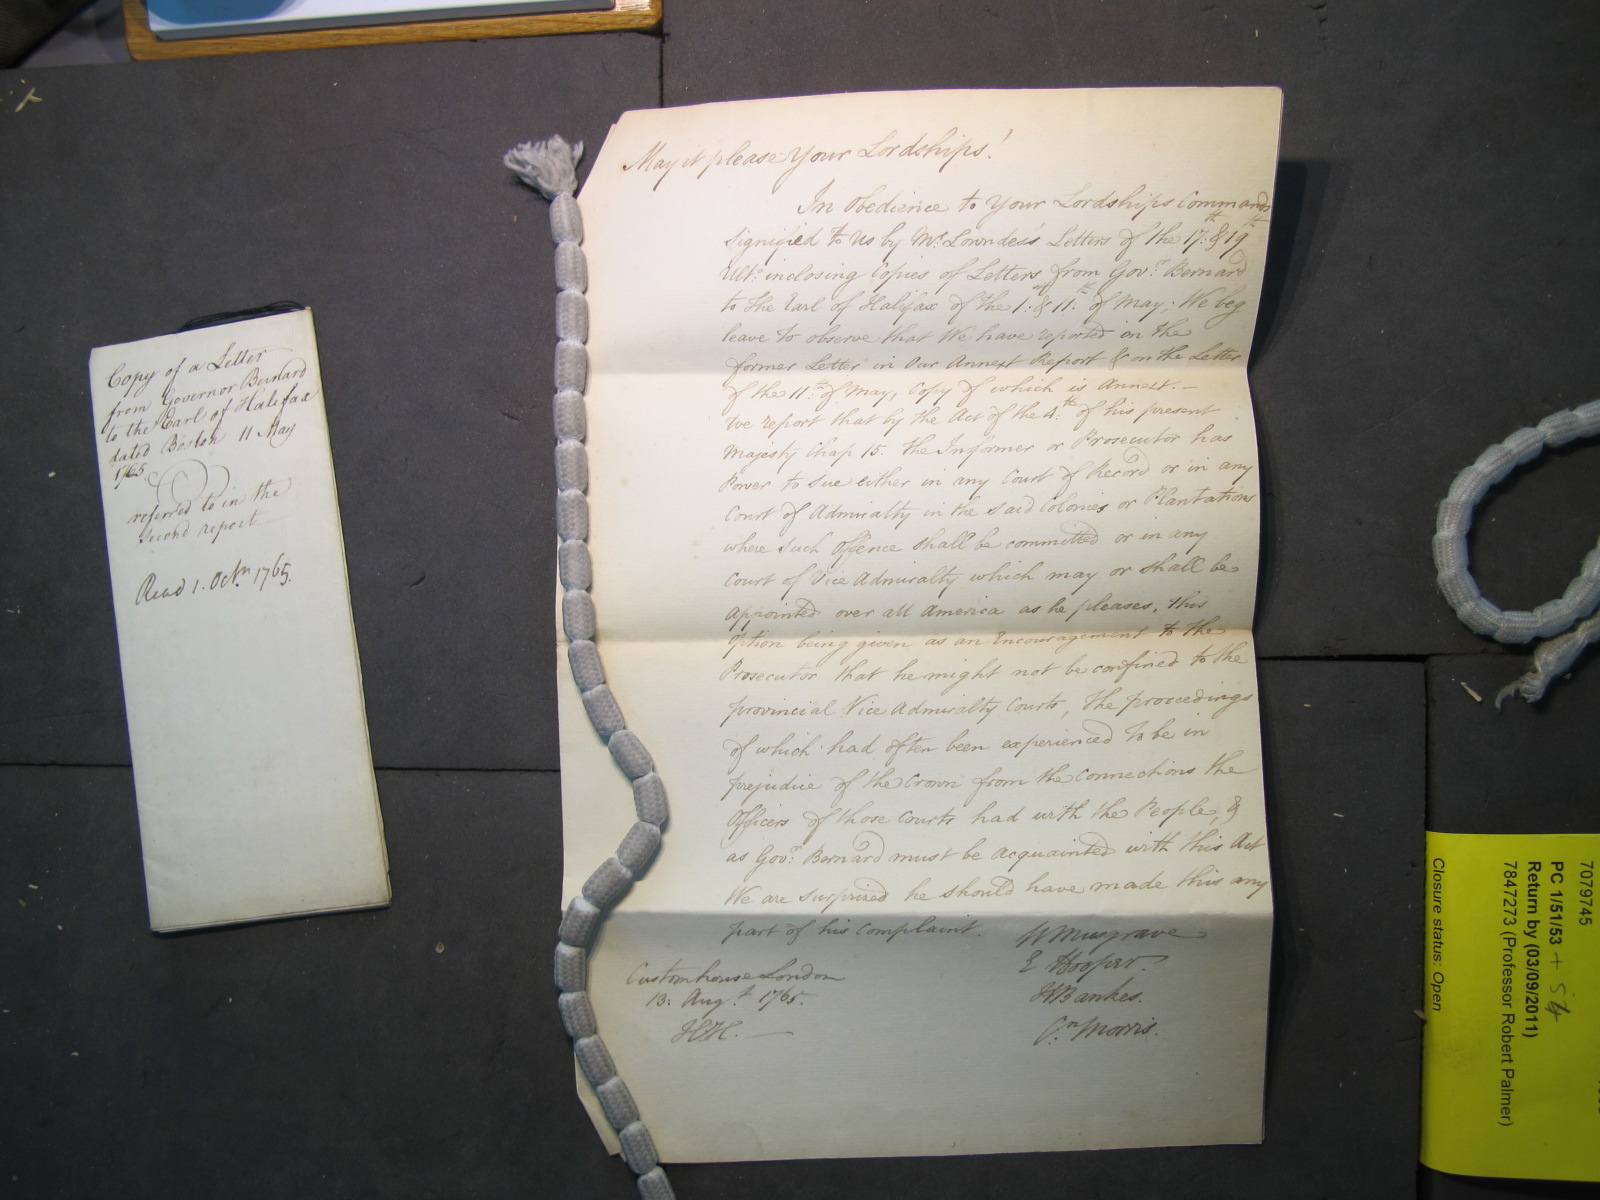 Copy of a Letter
from Governor Bernard
to the Earl of Halifax
dated Boston 11 May
1765.
referred to in the
second report
Read 1. Octr. 1765.
May it please Your Lordships!
In Obedience to Your Lordships Commands
signified to Us by Mr. Lowndes's Letters of the 17: & 19th
Ulto. inclosing Copies of Letters from Govr. Bernard
to the Earl of Halifax of the 1: & 11th. of May; We beg
leave to observe that We have reported on the
former Letter in Our Annext Report & on the Letter
of the 11th of May, Copy of which is Annext. —
We report that by the Act of the 4th of his present
Majesty Chap 15. the Informer or Prosecutor has
Power to sue either in any Court of Record or in any
Court of Admiralty in the said Colonies or Plantations
where such Offence shall be committed or in any
Court of Vice Admiralty which may or shall be
appointed over all America as he pleases, this
Option being given as an Encouragement to the
Prosecutor that he might not be confined to the
provincial Vice Admiralty Courts, the proceedings
of which had often been experienced to be in
prejudice of the Crown from the Connections the
Officers of those Courts had with the People, &
as Govr. Bernard must be acquainted with this Act
We are surprized he should have made this any
part of his Complaint.
W Musgrave
E Hooper.
H Bankes.
Cn. Morris.
Customhouse London
13: Augt. 1765.
HH. —
7079745
PC 1/51/53 +
Return by (03/09/2011)
7847273 (Professor Robert Palmer)
Closure status: Open